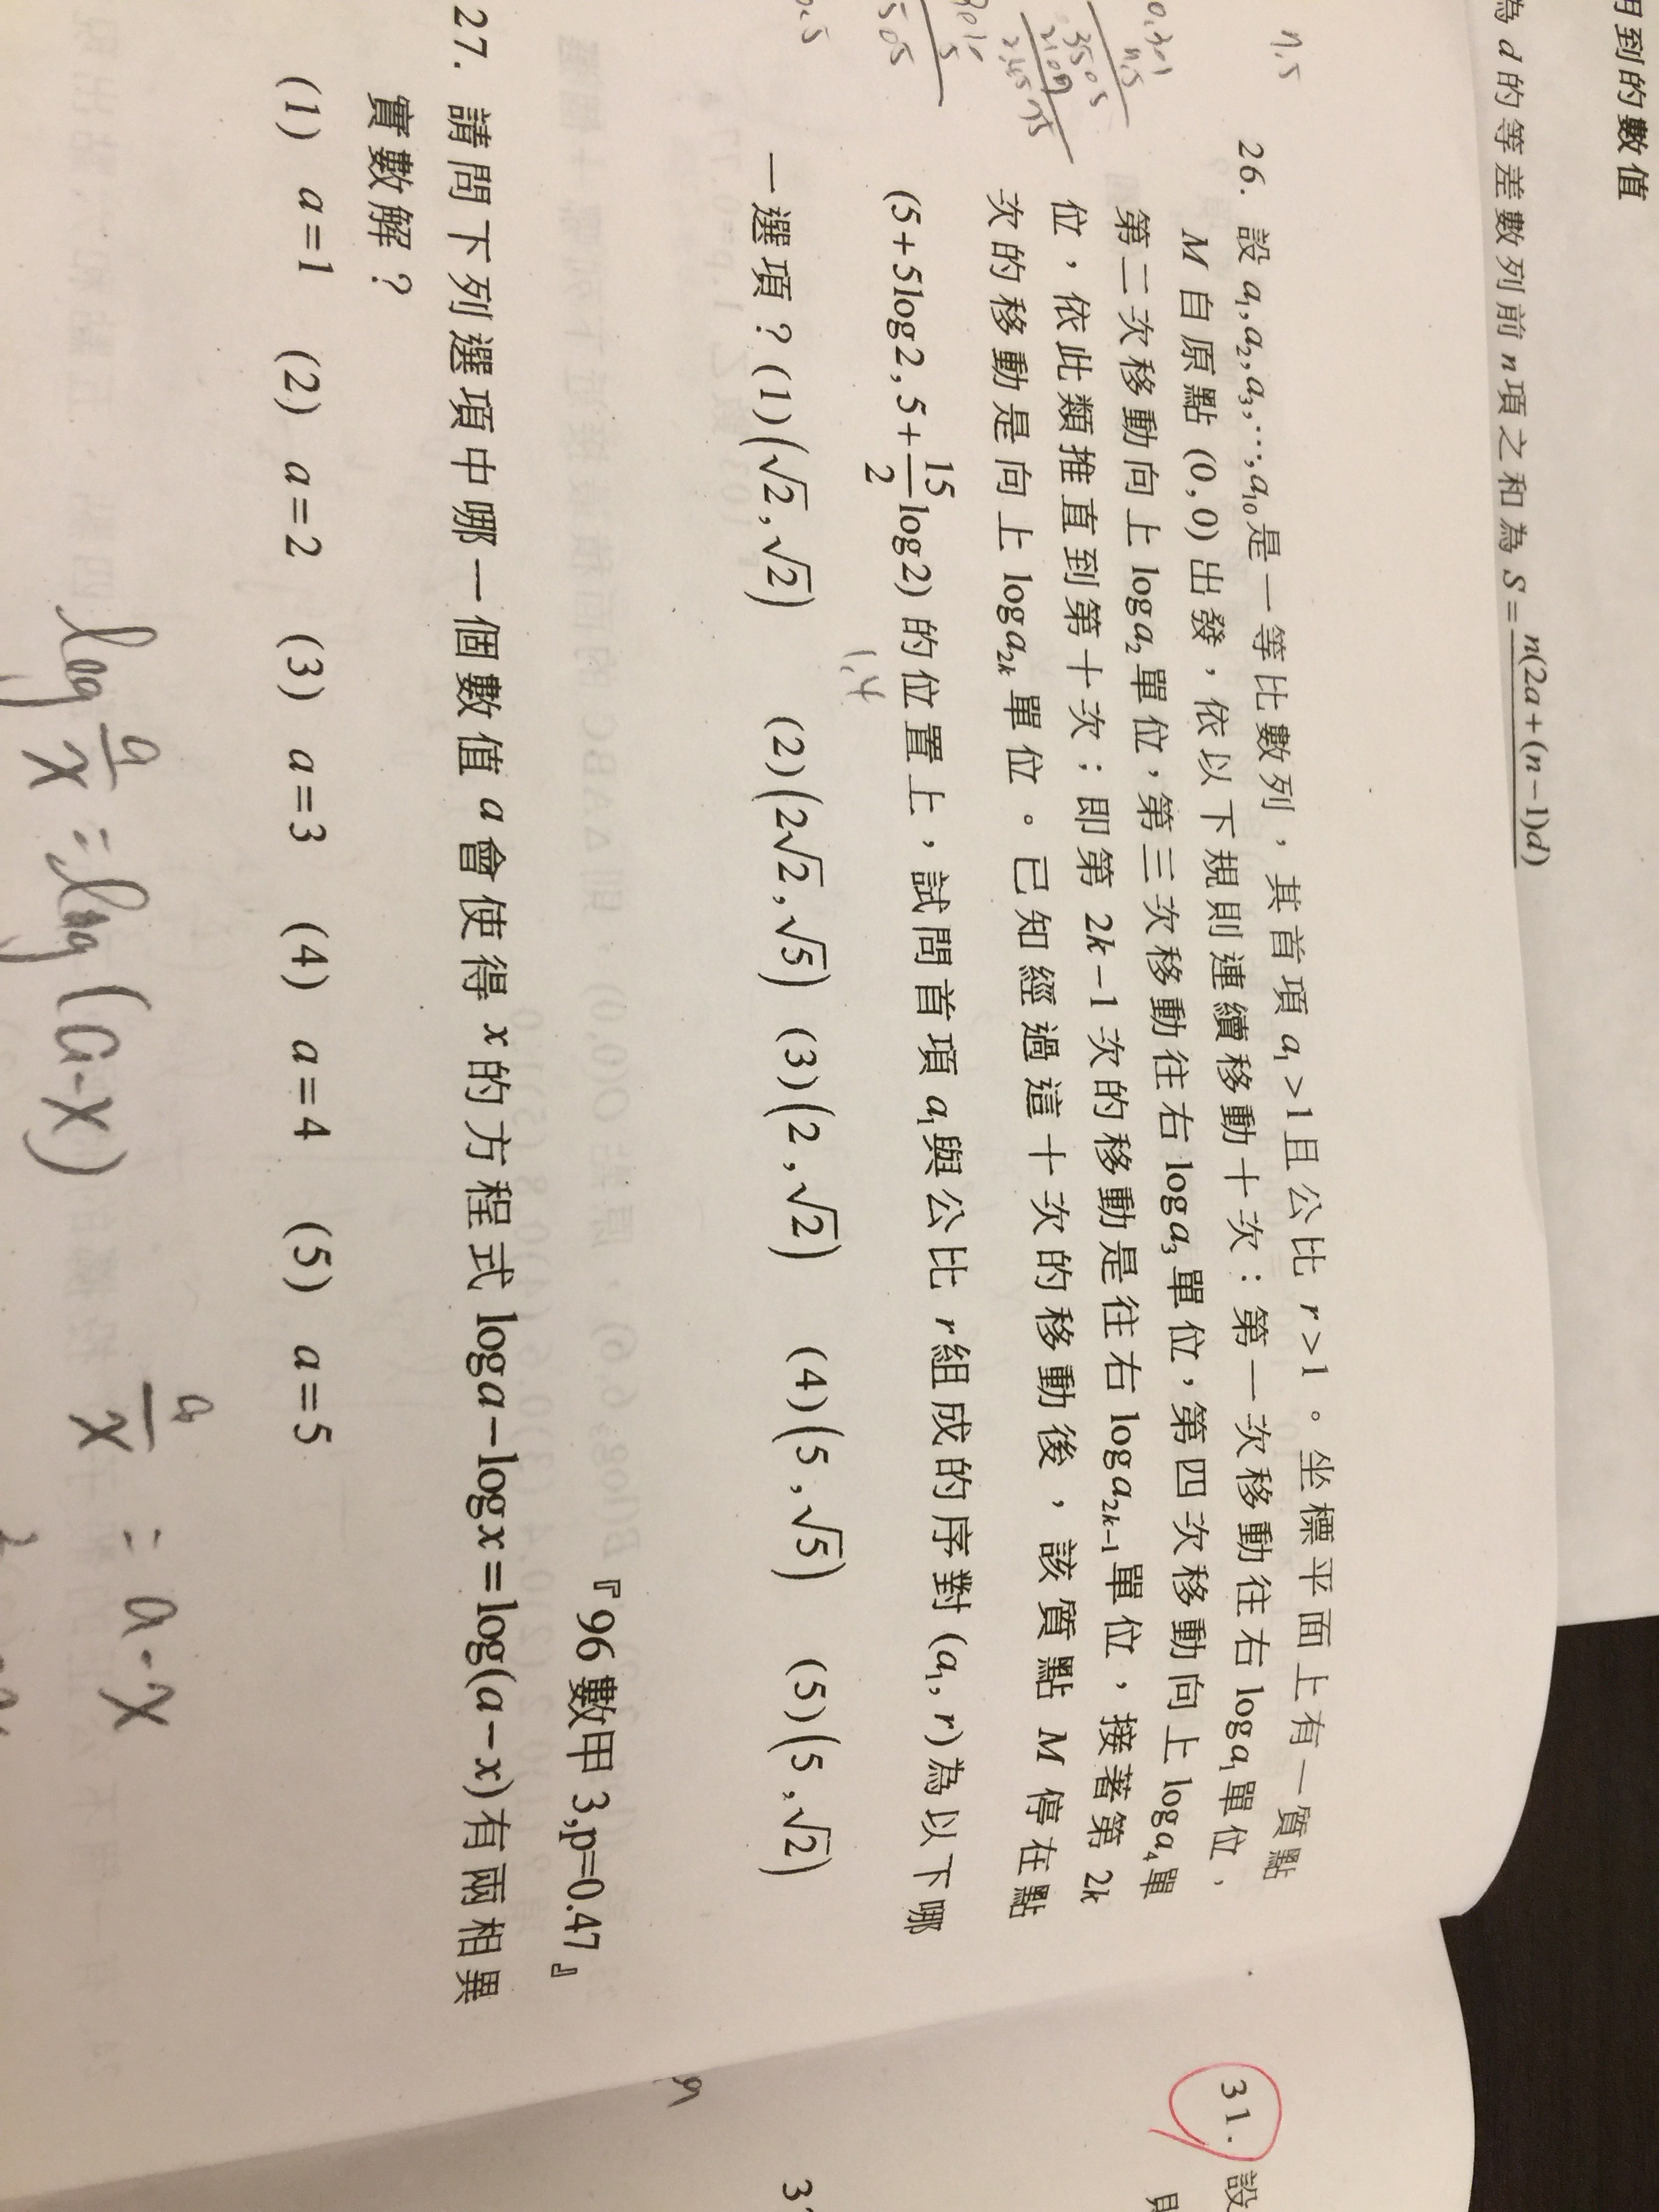 用到的數值
為 d 的等差數列前 n 項之和為 S = n(2a+(n−1)d)
n.5
26. 設 a₁,a₂,a₃,⋯,a₁₀ 是一等比數列，其首項 a₁>1 且公比 r>1。坐標平面上有一質點
M 自原點 (0,0) 出發，依以下規則連續移動十次：第一次移動往右 loga₁ 單位，
第二次移動向上 loga₂ 單位，第三次移動往右 loga₃ 單位，第四次移動向上 loga₄ 單
位，依此類推直到第十次；即第 2k−1 次的移動是往右 loga₂ₖ₋₁ 單位，接著第 2k
次的移動是向上 loga₂ₖ 單位。已知經過這十次的移動後，該質點 M 停在點
(5+5log2, 5+15/2 log2) 的位置上，試問首項 a₁ 與公比 r 組成的序對 (a₁, r) 為以下哪
1.4
一選項？(1)(√2,√2) (2)(2√2,√5) (3)(2,√2) (4)(5,√5) (5)(5,√2)
『96 數甲 3,p=0.47』
27. 請問下列選項中哪一個數值 a 會使得 x 的方程式 loga−logx=log(a−x) 有兩相異
實數解？
(1) a=1 (2) a=2 (3) a=3 (4) a=4 (5) a=5
log a/x = log(a-x) a/x = a-x
31. 設